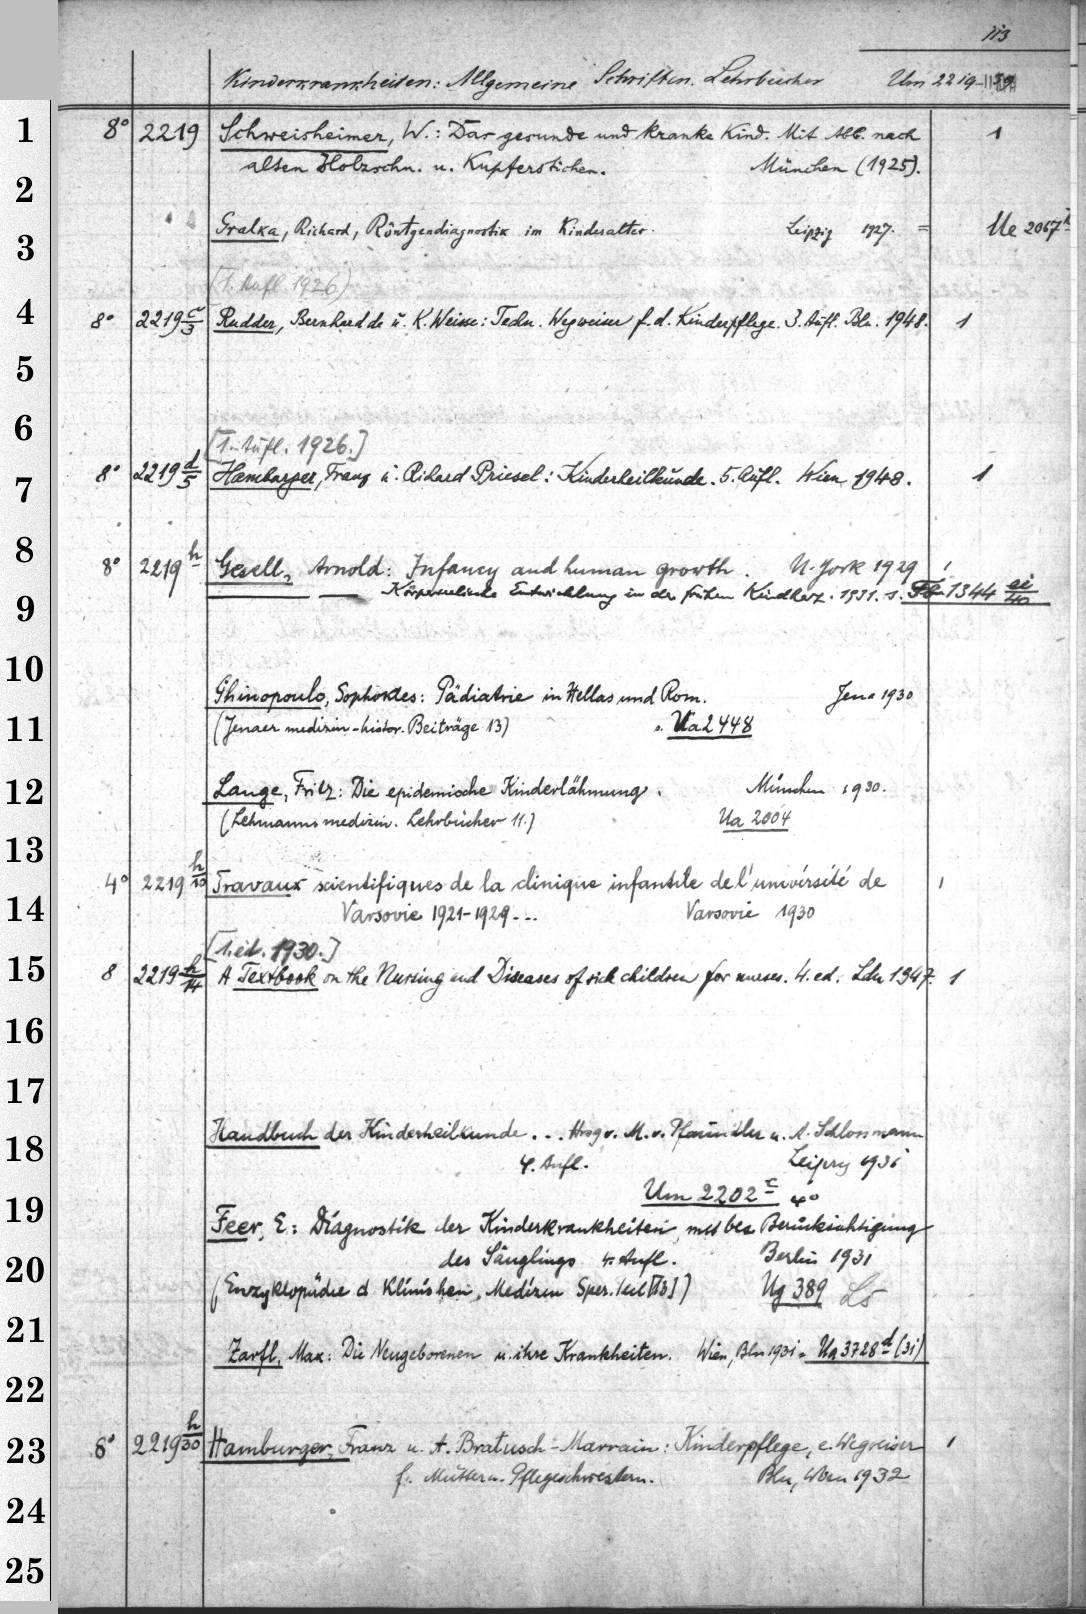 113
Kinderkrankheiten: Allgemeine Schriften. Lehrbücher Um 2219
1 8° 2219 Schweisheimer, W.: Das gesunde und kranke Kind. Mit Abb. nach 1
alten Holzschn. u. Kupferstichen. München (1925).
2
3 Gralka, Richard, Röntgendiagnostik im Kindesalter. Leipzig 1927. = Ue 2067
(1. Aufl. 1926)
4 8° 2219 c/3 Rudder, Bernhard de u. K. Weisse: Techn. Wegweiser f. d. Kinderpflege. 3. Aufl. Bln. 1948. 1
5
6
[1. Aufl. 1926.]
7 8° 2219 d/5 Hamburger, Franz u. Rihard Priesel: Kinderheilkunde. 5. Aufl. Wien 1948. 1
8 8° 2219 h Gesell, Arnold: Infancy and human growth. N-York 1929 1
9 — — Körperseelische Entwicklung in der frühen Kindheit. 1931. s. 1344 ei/40
10
Ghinopoulo, Sophokles: Pädiatrie in Hellas und Rom. Jena 1930
11 (Jenaer medizin-histor. Beiträge 13) s. Ua 2448
12 Lange, Fritz: Die epidemische Kinderlähmung. München 1930.
(Lehmanns medizin. Lehrbücher 11.) Ua 2004
13
4° 2219 h/10 Travaux scientifiques de la clinique infantile de l'université de 1
14 Varsovie 1921-1929... Varsovie 1930
[1. ed. 1930.]
15 8 2219 h/14 A Textbook on the Nursing and Diseases of sick children for nurses. 4. ed. Ldn 1947. 1
16
17
Handbuch der Kinderheilkunde... Hrsg v. M. v. Pfaundler u. A. Schlossmann
18 4. Aufl. Leipzig 1931
Um 2202 c 4°
19 Feer, E: Diagnostik der Kinderkrankheiten, mit bes Berücksichtigung
20 des Säuglings 4. Aufl. Berlin 1931
(Enzyklopädie d Klinischen Medizin Spez. Teil [13]) Ug 389 Ls
21
Zarfl, Max: Die Neugeborenen u. ihre Krankheiten. Wien, Bln 1931 = Ua 3728 d (3i)
22
23 8° 2219 h/30 Hamburger, Franz u. A. Bratusch-Marrain: Kinderpflege, e. Wegweiser 1
f. Mütter u. Pflegeschwestern. Bln, Wien 1932
24
25